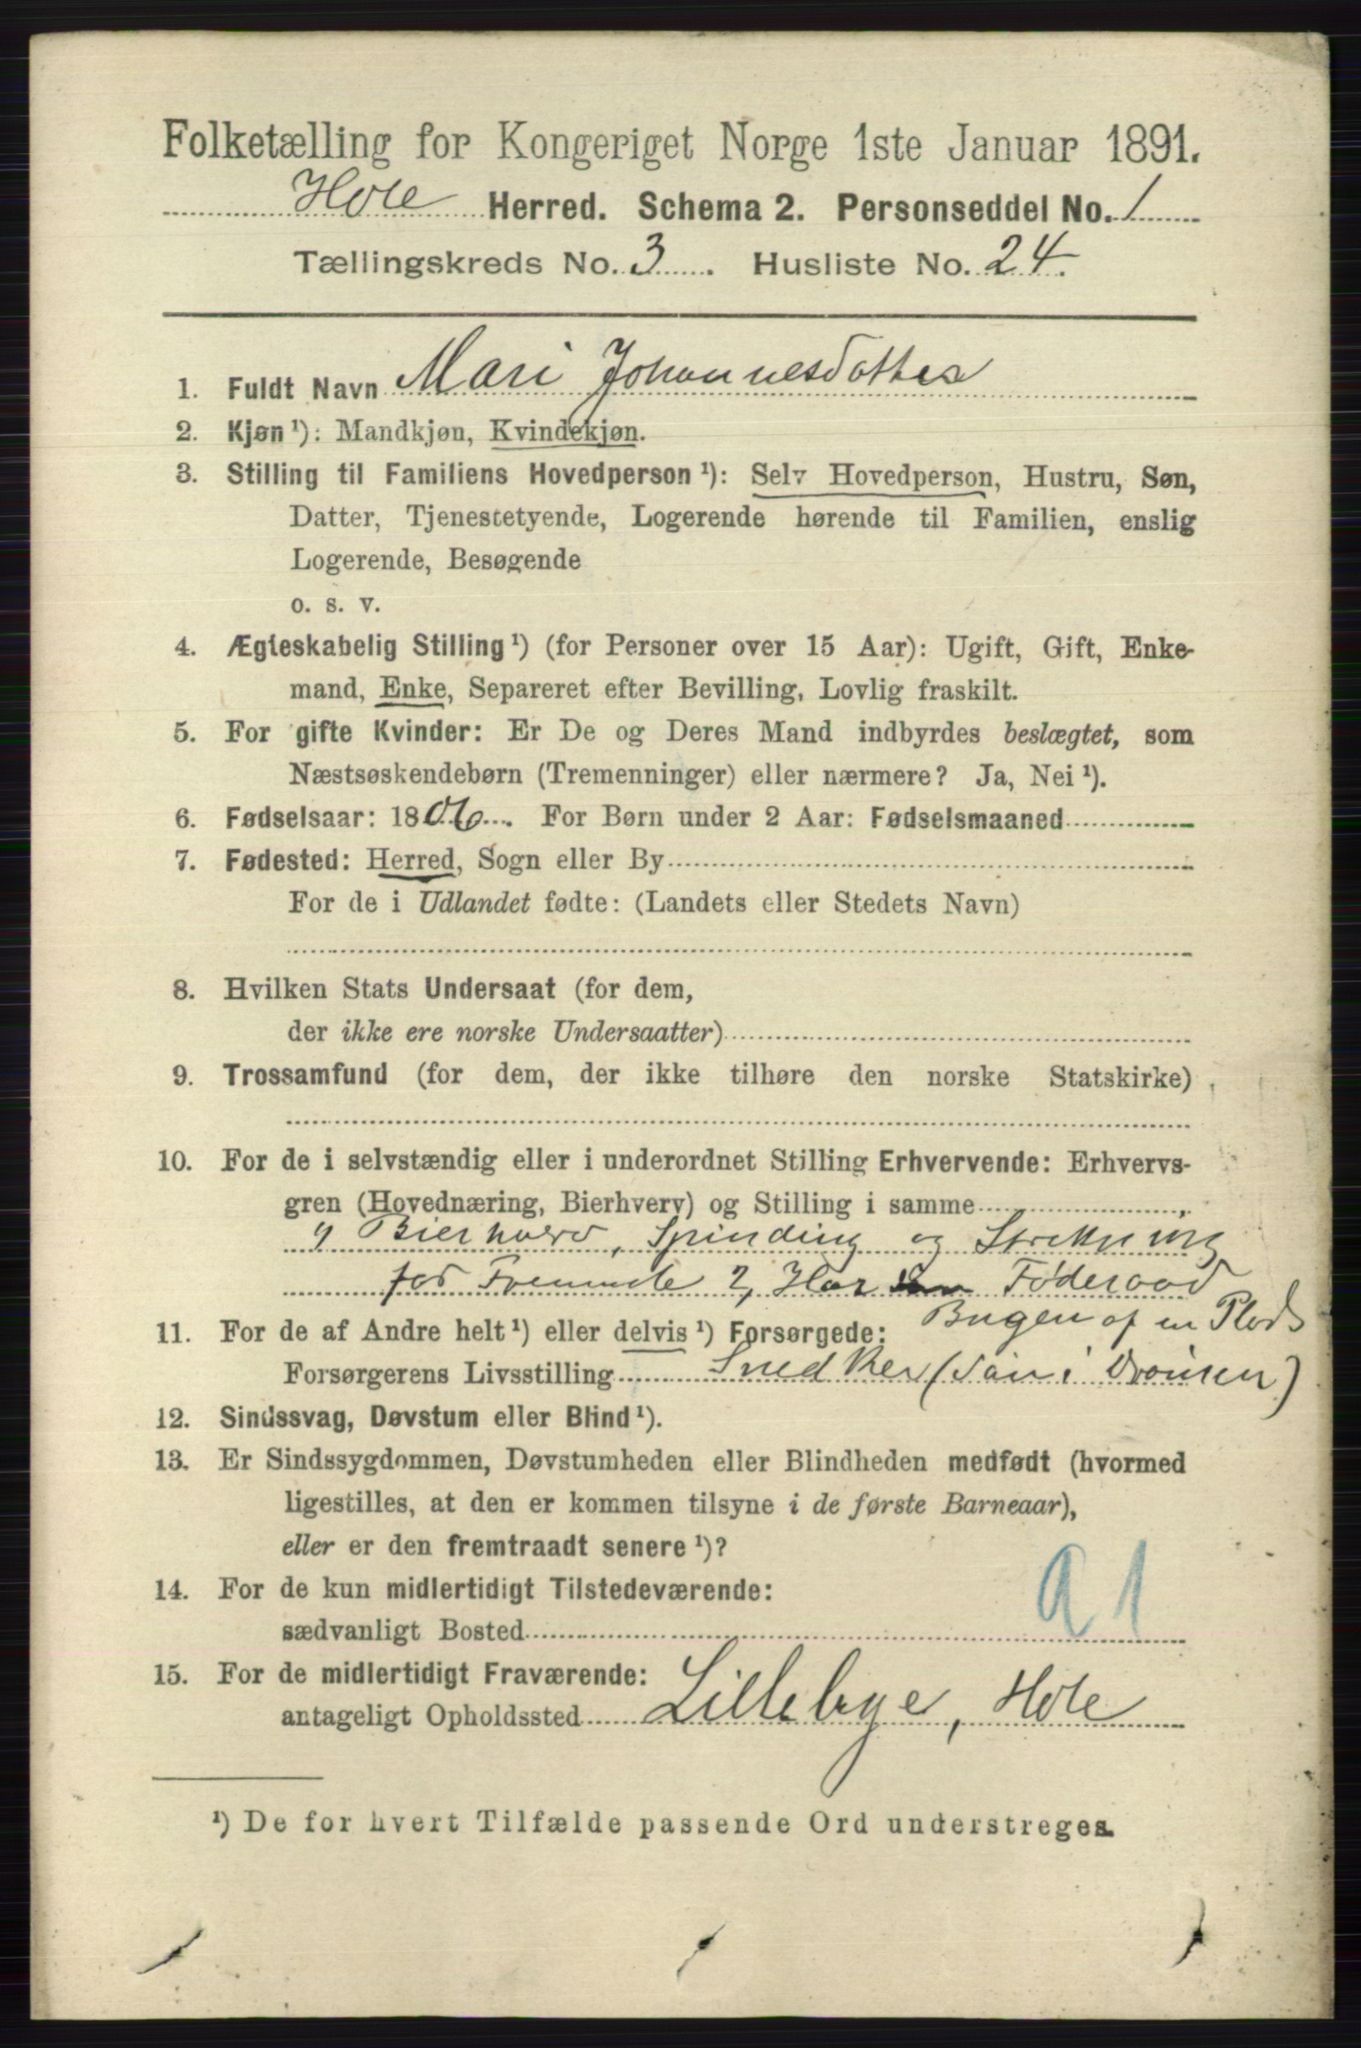 Folketælling for Kongeriget Norge 1ste Januar 1891.
Hole Herred. Schema 2. Personseddel No. 1
Tællingskreds No. 3. Husliste No. 24.
1. Fuldt Navn Mari Johannesdatter
2. Kjøn¹): Mandkjøn, Kvindekjøn.
3. Stilling til Familiens Hovedperson¹): Selv Hovedperson, Hustru, Søn,
Datter, Tjenestetyende, Logerende hørende til Familien, enslig
Logerende, Besøgende
o. s. v.
4. Ægteskabelig Stilling¹) (for Personer over 15 Aar): Ugift, Gift, Enke-
mand, Enke, Separeret efter Bevilling, Lovlig fraskilt.
5. For gifte Kvinder: Er De og Deres Mand indbyrdes beslægtet, som
Næstsøskendebørn (Tremenninger) eller nærmere? Ja, Nei¹).
6. Fødselsaar: 1806. For Børn under 2 Aar: Fødselsmaaned
7. Fødested: Herred, Sogn eller By
For de i Udlandet fødte: (Landets eller Stedets Navn)
8. Hvilken Stats Undersaat (for dem,
der ikke ere norske Undersaatter)
9. Trossamfund (for dem, der ikke tilhøre den norske Statskirke)
10. For de i selvstændig eller i underordnet Stilling Erhvervende: Erhvervs-
gren (Hovednæring, Bierhverv) og Stilling i samme
Bierhverv, Spinding og Strikning
for Fremmede 2, Har Føderaad
Bugen af en Plads
11. For de af Andre helt¹) eller delvis¹) Forsørgede:
Forsørgerens Livsstilling Snedker (Søn i )
12. Sindssvag, Døvstum eller Blind¹).
13. Er Sindssygdommen, Døvstumheden eller Blindheden medfødt (hvormed
ligestilles, at den er kommen tilsyne i de første Barneaar),
eller er den fremtraadt senere¹)?
14. For de kun midlertidigt Tilstedeværende:
sædvanligt Bosted
a 1
15. For de midlertidigt Fraværende:
antageligt Opholdssted Lillebye, Hole
¹) De for hvert Tilfælde passende Ord understreges.